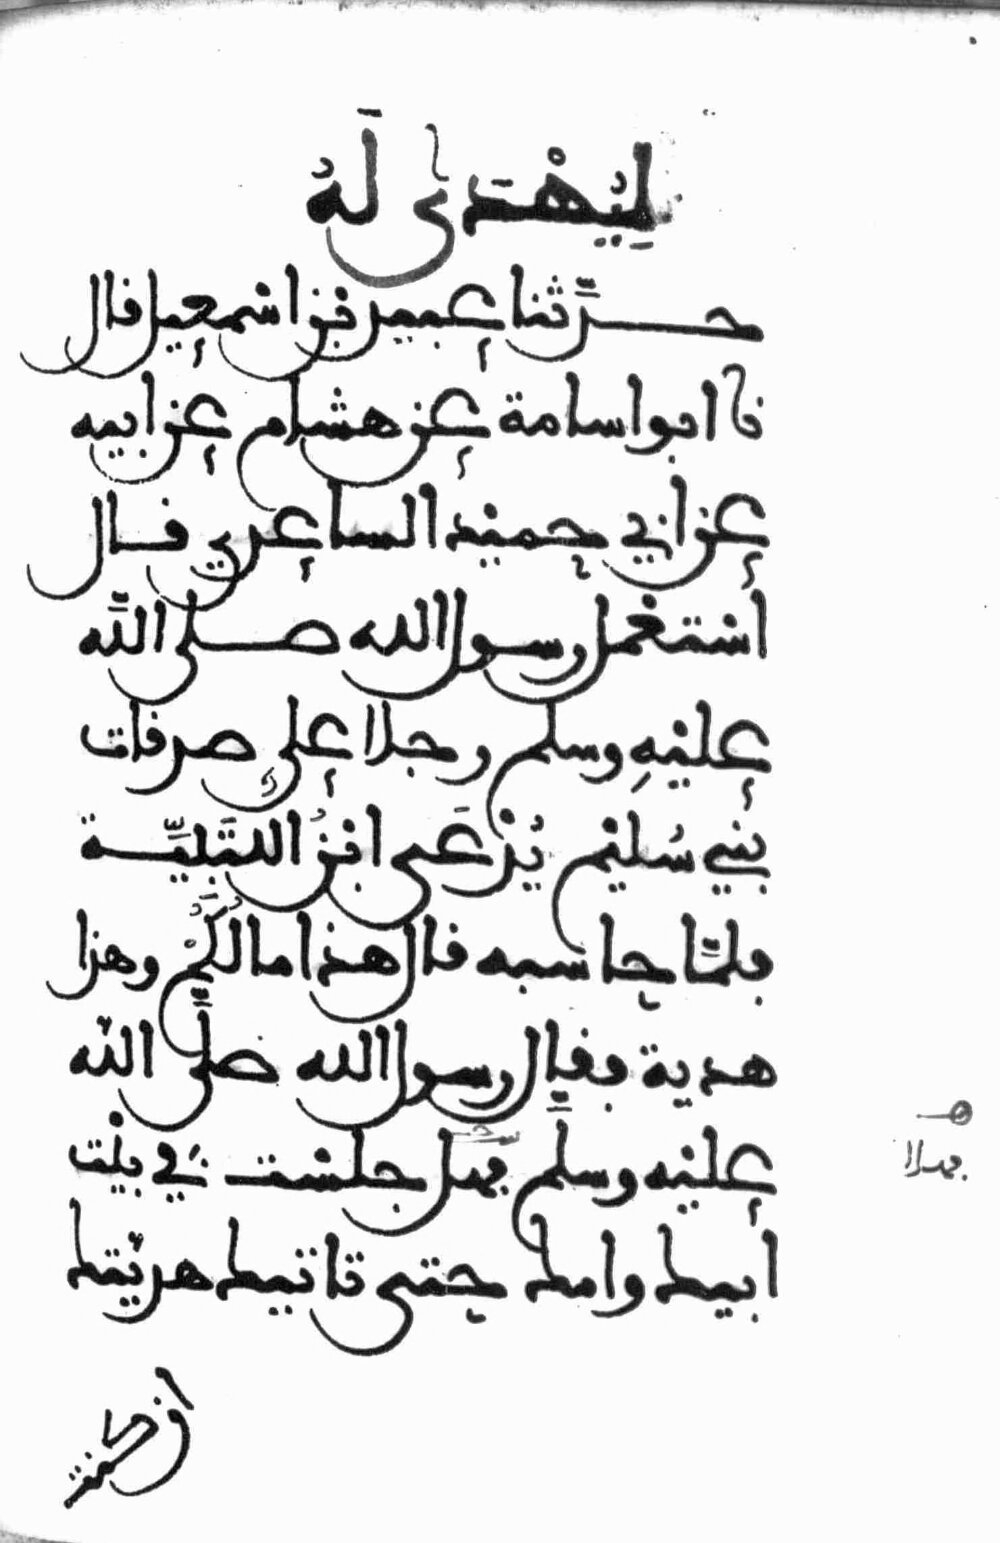 لِيُهْدَى لَهُ
حدّثنا عبيد بن اسمعيل قال
نا ابو اسامة عن هشام عن ابيه
عن ابي حميد الساعدي قال
استعمل رسول الله صلى اللّه
عليه وسلم رجلا على صدقات
بني سُليم يُدْعَى ابنُ اللتَبِيّة
فلمّا حاسبه قال هذا مالكُمْ وهذا
هدية فقال رسول الله صلّى الله
عليه وسلّم فهل جلست في بيت
ابيك وامك حتى تاتيك هديتك
فهلا
ان كنت